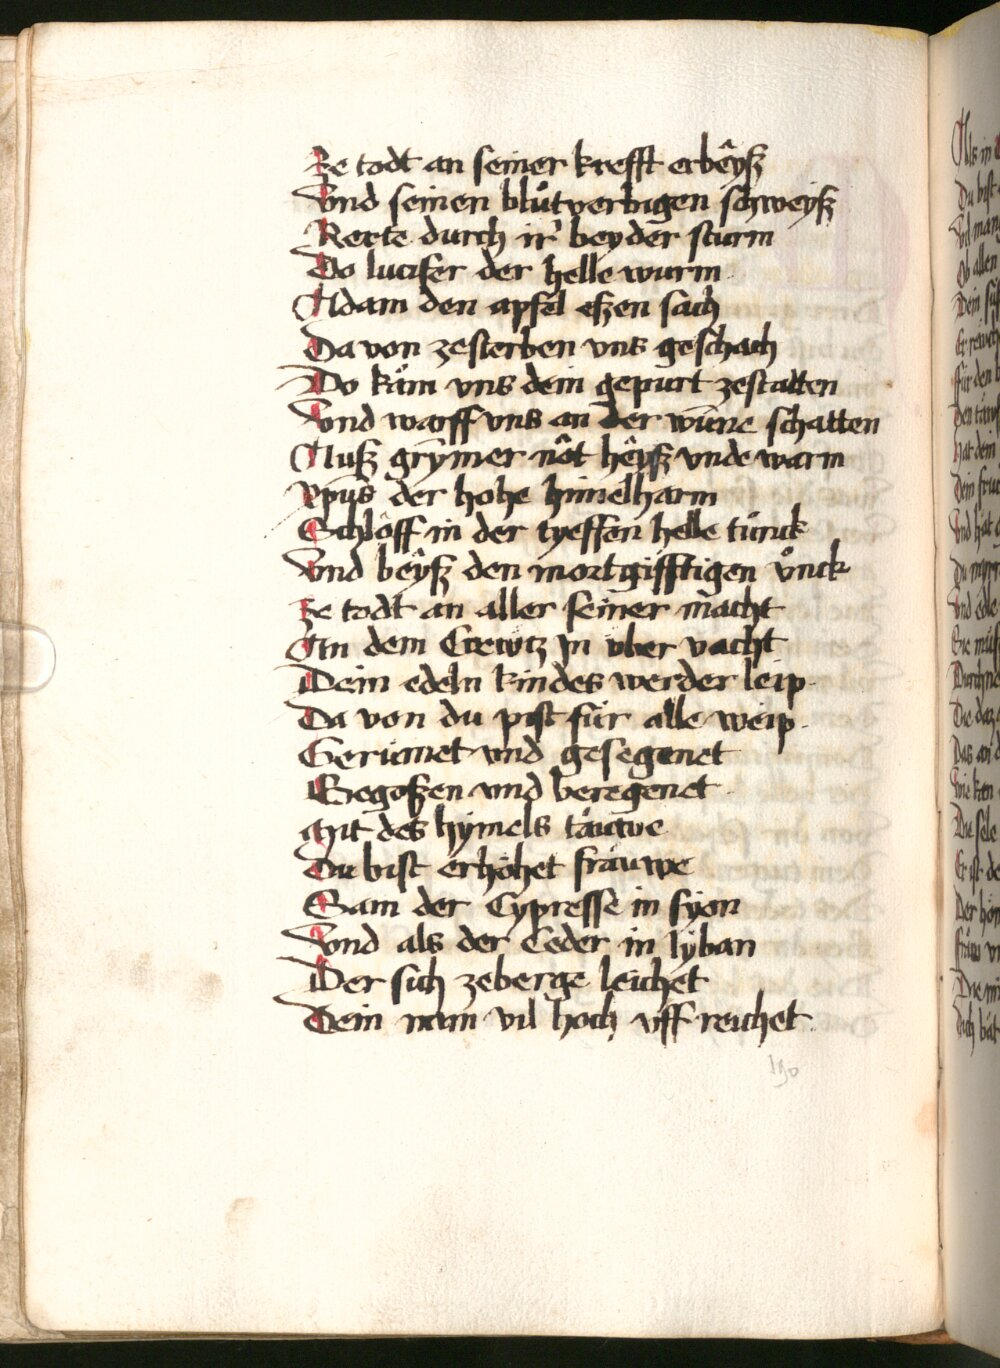 Ze todt an seiner krefft erbêyß
Vnd seinen blůtverbigen schweyß
Rerte durch ir beyder sturm
Do lucifer der helle wurm
Adam den apfel eßen sach
Da von zesterben vns geschach
Do kam vns dein gepurt zestatten
Vnd warff vns an der wūne schatten
Auß grymer nôt hêyß vnde warm
Xpūs der hohe himelharm
Schloff in der tyeffen helle turck
Vnd bêyß den mortgifftigen vnck
Ze todt an aller seiner macht
An dem Crewtz in vber vacht
Dein edeln kindes werder leip
Da von du pist für alle weip
Gerümet vnd gesegenet
Begoßen vnd beregenet
Mit des hymels tauwe
Du bist erhöhet frauwe
Sam der Cypresse in syon
Vnd als der Ceder in lyban
Der sich zeberge leichet
Dein nam vil hoch vff reichet
190